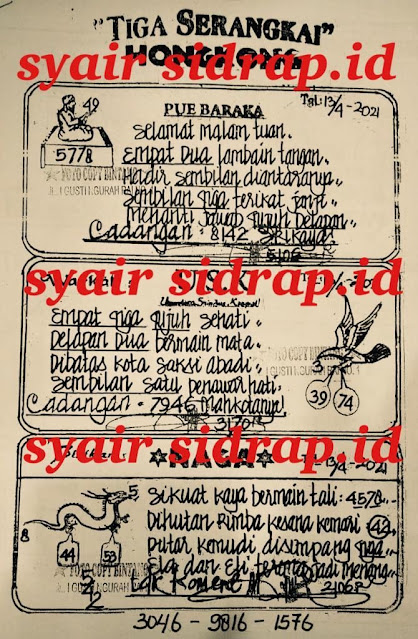 "TIGA SERANGKAI"
HONGKONG
syair sidrap.id
49
PUE BARAKA
Tgl: 13/4-2021
5778
Selamat malam tuan.
Empat Dua lambain tangan.
Hadir sembilan diantaranya..
FOTO COPY BINTANG
JL. I GUSTI NGURAH RAI NO.
Sembilan tiga terikat janji
Menanti jawab tujuh Delapan..
Cadangan = 8142
5106
syair sidrap.id
U.S.K
2021
Empat tiga tujuh sehati..
Delapan Dua bermain mata.
Dibatas kota saksi abadi..
Sembilan satu penawar hati.
3
FOTO COPY BINTANG
JL. I GUSTI NGURAH RAI NO.
39 74
Cadangan = 7946 Mahkotanya!
3170R
syair sidrap.id
NAGA
13/4-2021
5
8
44 53
Sikuat kaya bermain tali: 4578..
Dihutan Rimba kesana kemari 42
Putar komudi disimpang tiga..
FOTO COPY BINTANG
I GUSTI NGURAH
Ela dan Eli jadi menang..
2106R
3046 - 9816 - 1576